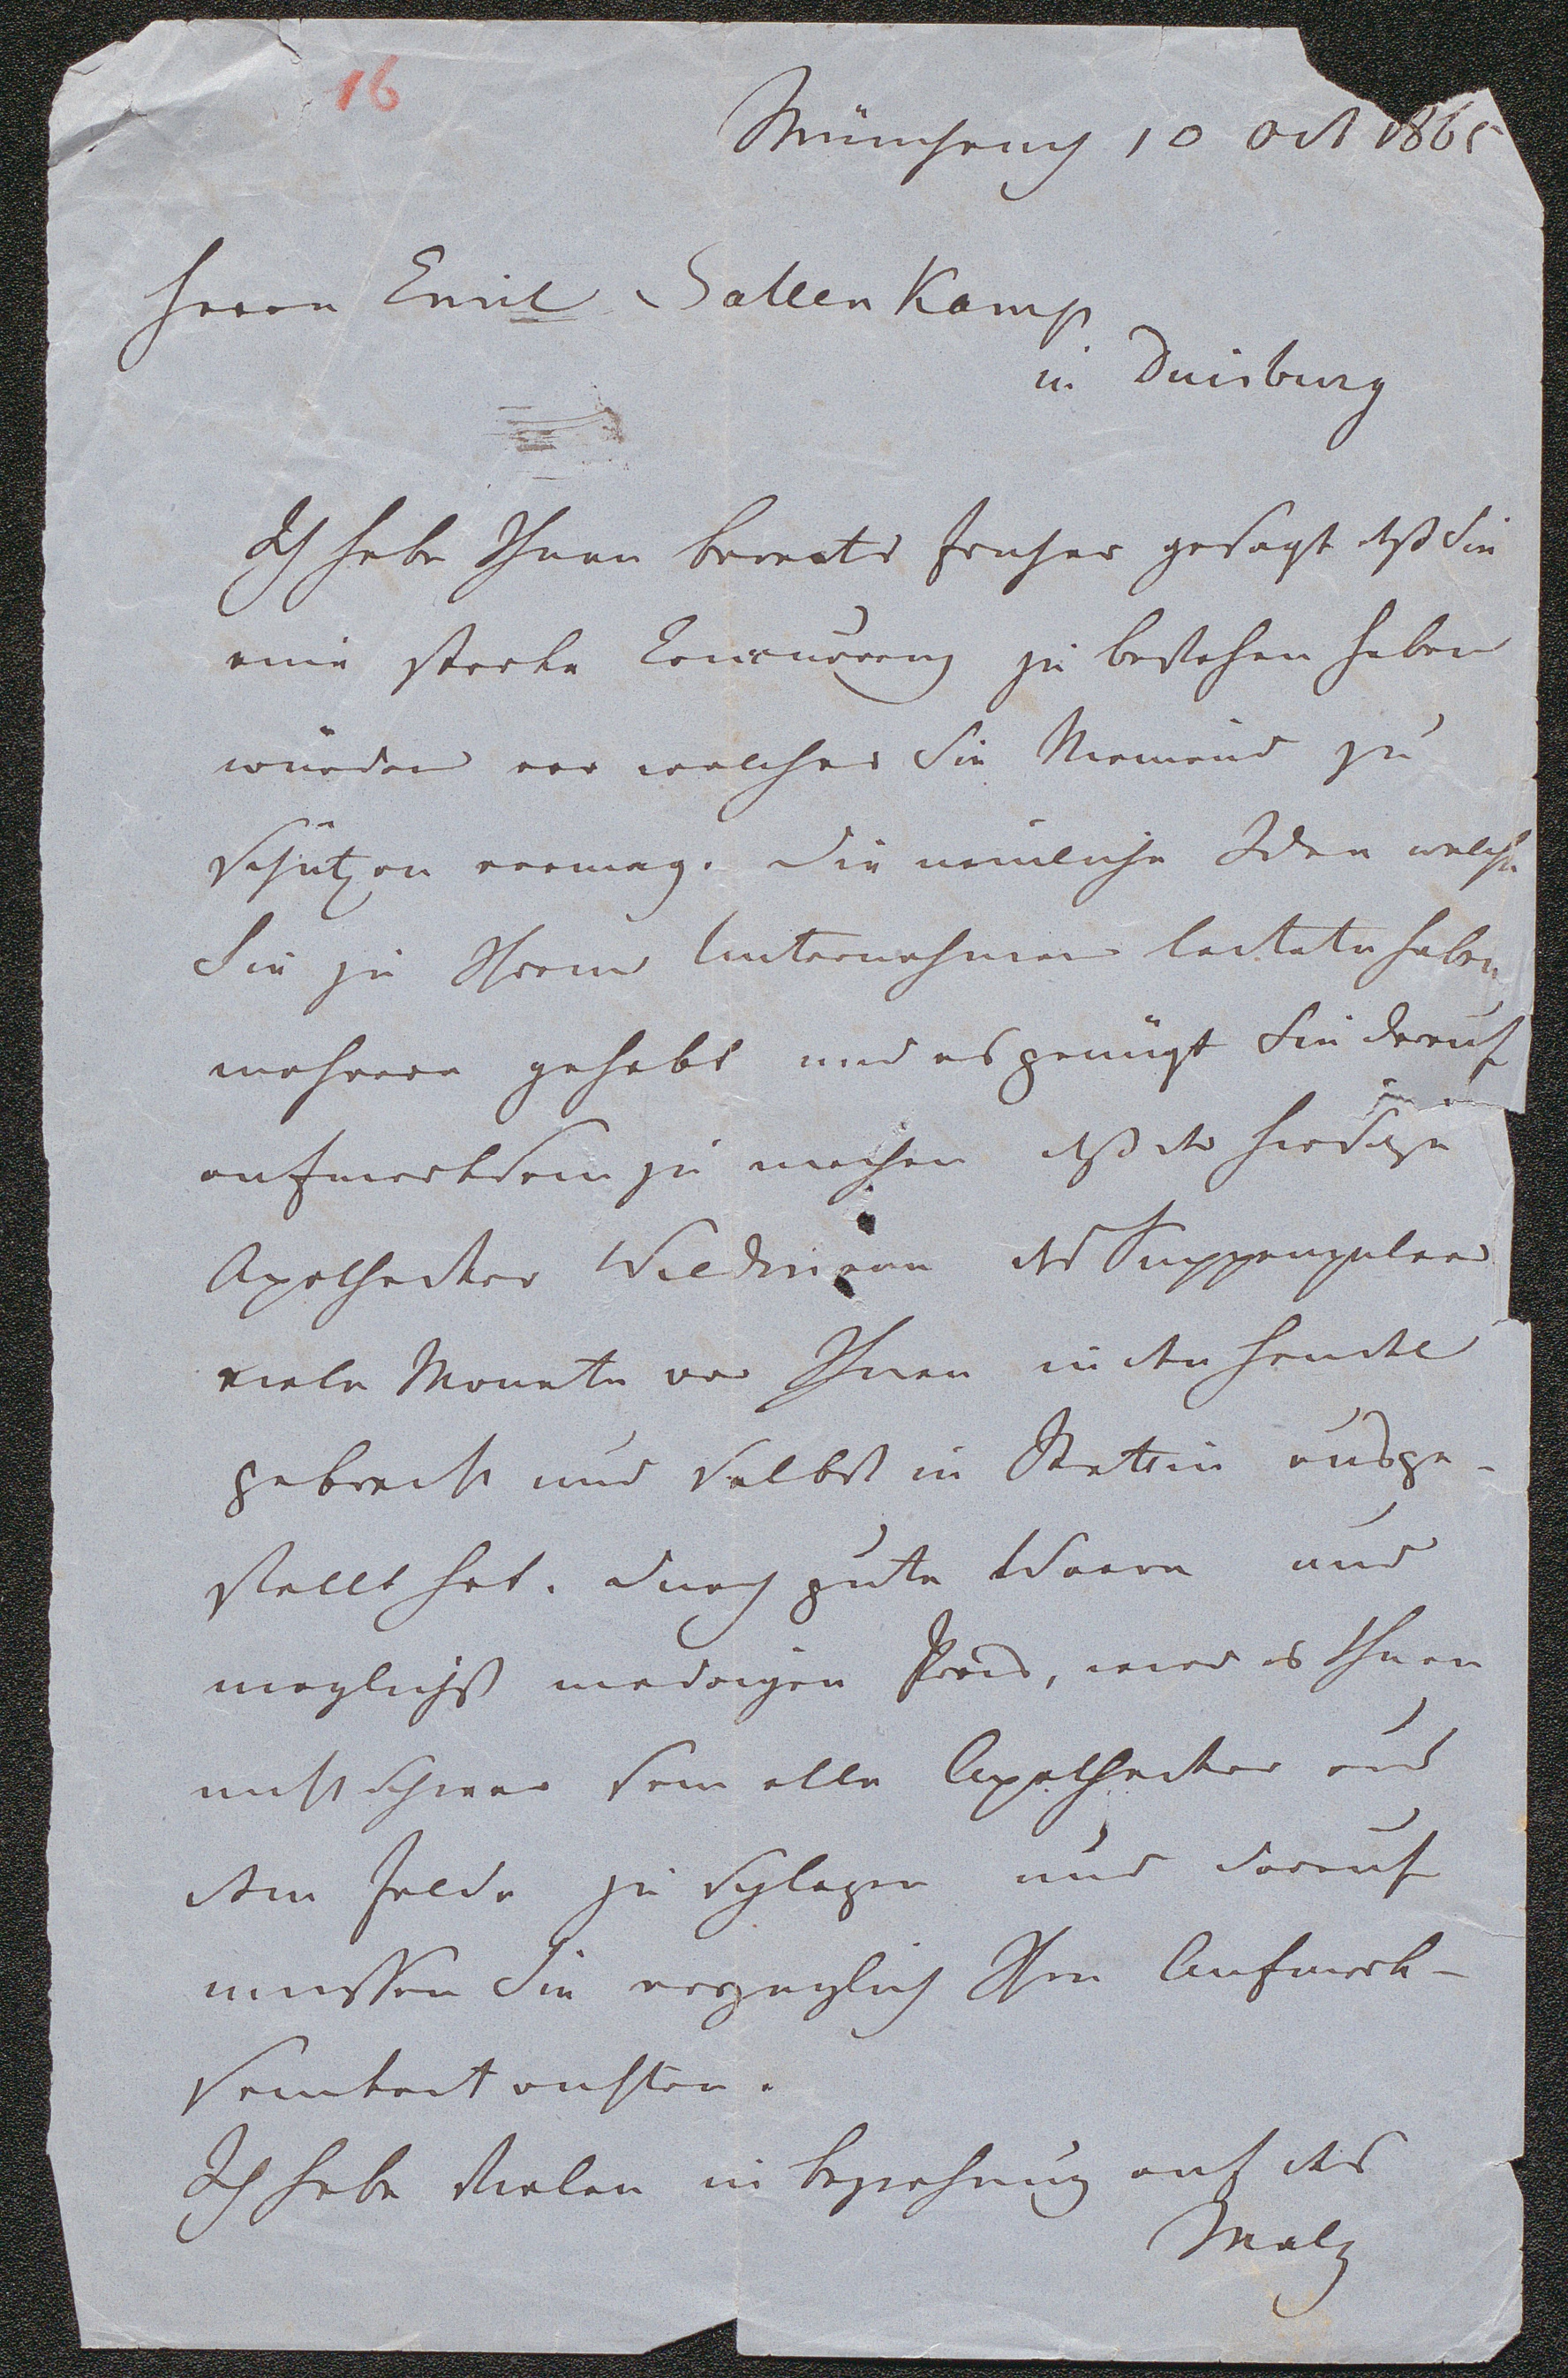 16
München 10 Oct 1865
Herrn Emil Sallenkamp
in Duisburg
Ich habe Ihnen bereits fruher gesagt daß Sie
eine starke Concurrenz zu bestehen haben
würden vor welcher Sie Niemand zu
schützen vermag. Die nämliche Idee welche
Sie zu Ihrem Unternehmen leitete haben
mehrere gehabt und es genügt Sie darauf
aufmerksam zu machen daß der hiesige
Apothecker Wiedmann das Suppenpulver
viele Monate vor Ihnen in den Handel
gebracht und selbst in Stettin ausge-
stellt hat. Durch gute Waare und
moglichst niedrigen Preis, wird es Ihnen
nicht schwer sein alle Apothecker aus
dem Felde zu schlagen und darauf
mussen Sie vorzuglich Ihre Aufmerk-
samkeit richten.
Ich habe Vielen in Beziehung auf das
Malz